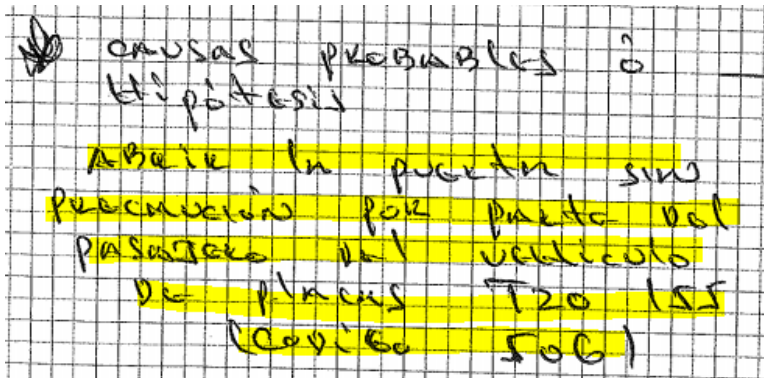 causas probables ó
Hipótesis
Abrir la puerta sin
precaución por parte del
pasajero del vehiculo
de placas T20 155
(codigo 506)